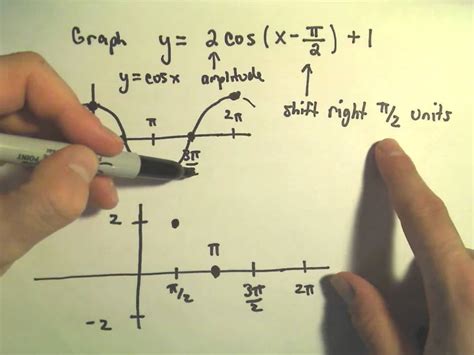 Graph y = 2 cos ( x - π/2 ) + 1
y = cos x amplitude
shift right π/2 units
π 3π/2 2π
2
π
π/2 3π/2 2π
-2